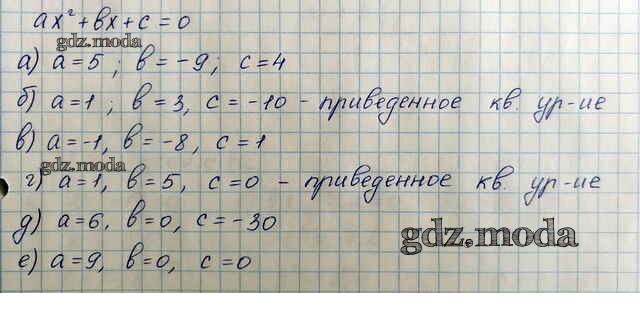 ax² + bx + c = 0
gdz.moda
а) a = 5 ; b = -9 ; c = 4
б) a = 1 ; b = 3, c = -10 - приведенное кв. ур-ие
в) a = -1, b = -8, c = 1
gdz.moda
г) a = 1, b = 5, c = 0 - приведенное кв. ур-ие
д) a = 6, b = 0, c = -30
gdz.moda
е) a = 9, b = 0, c = 0